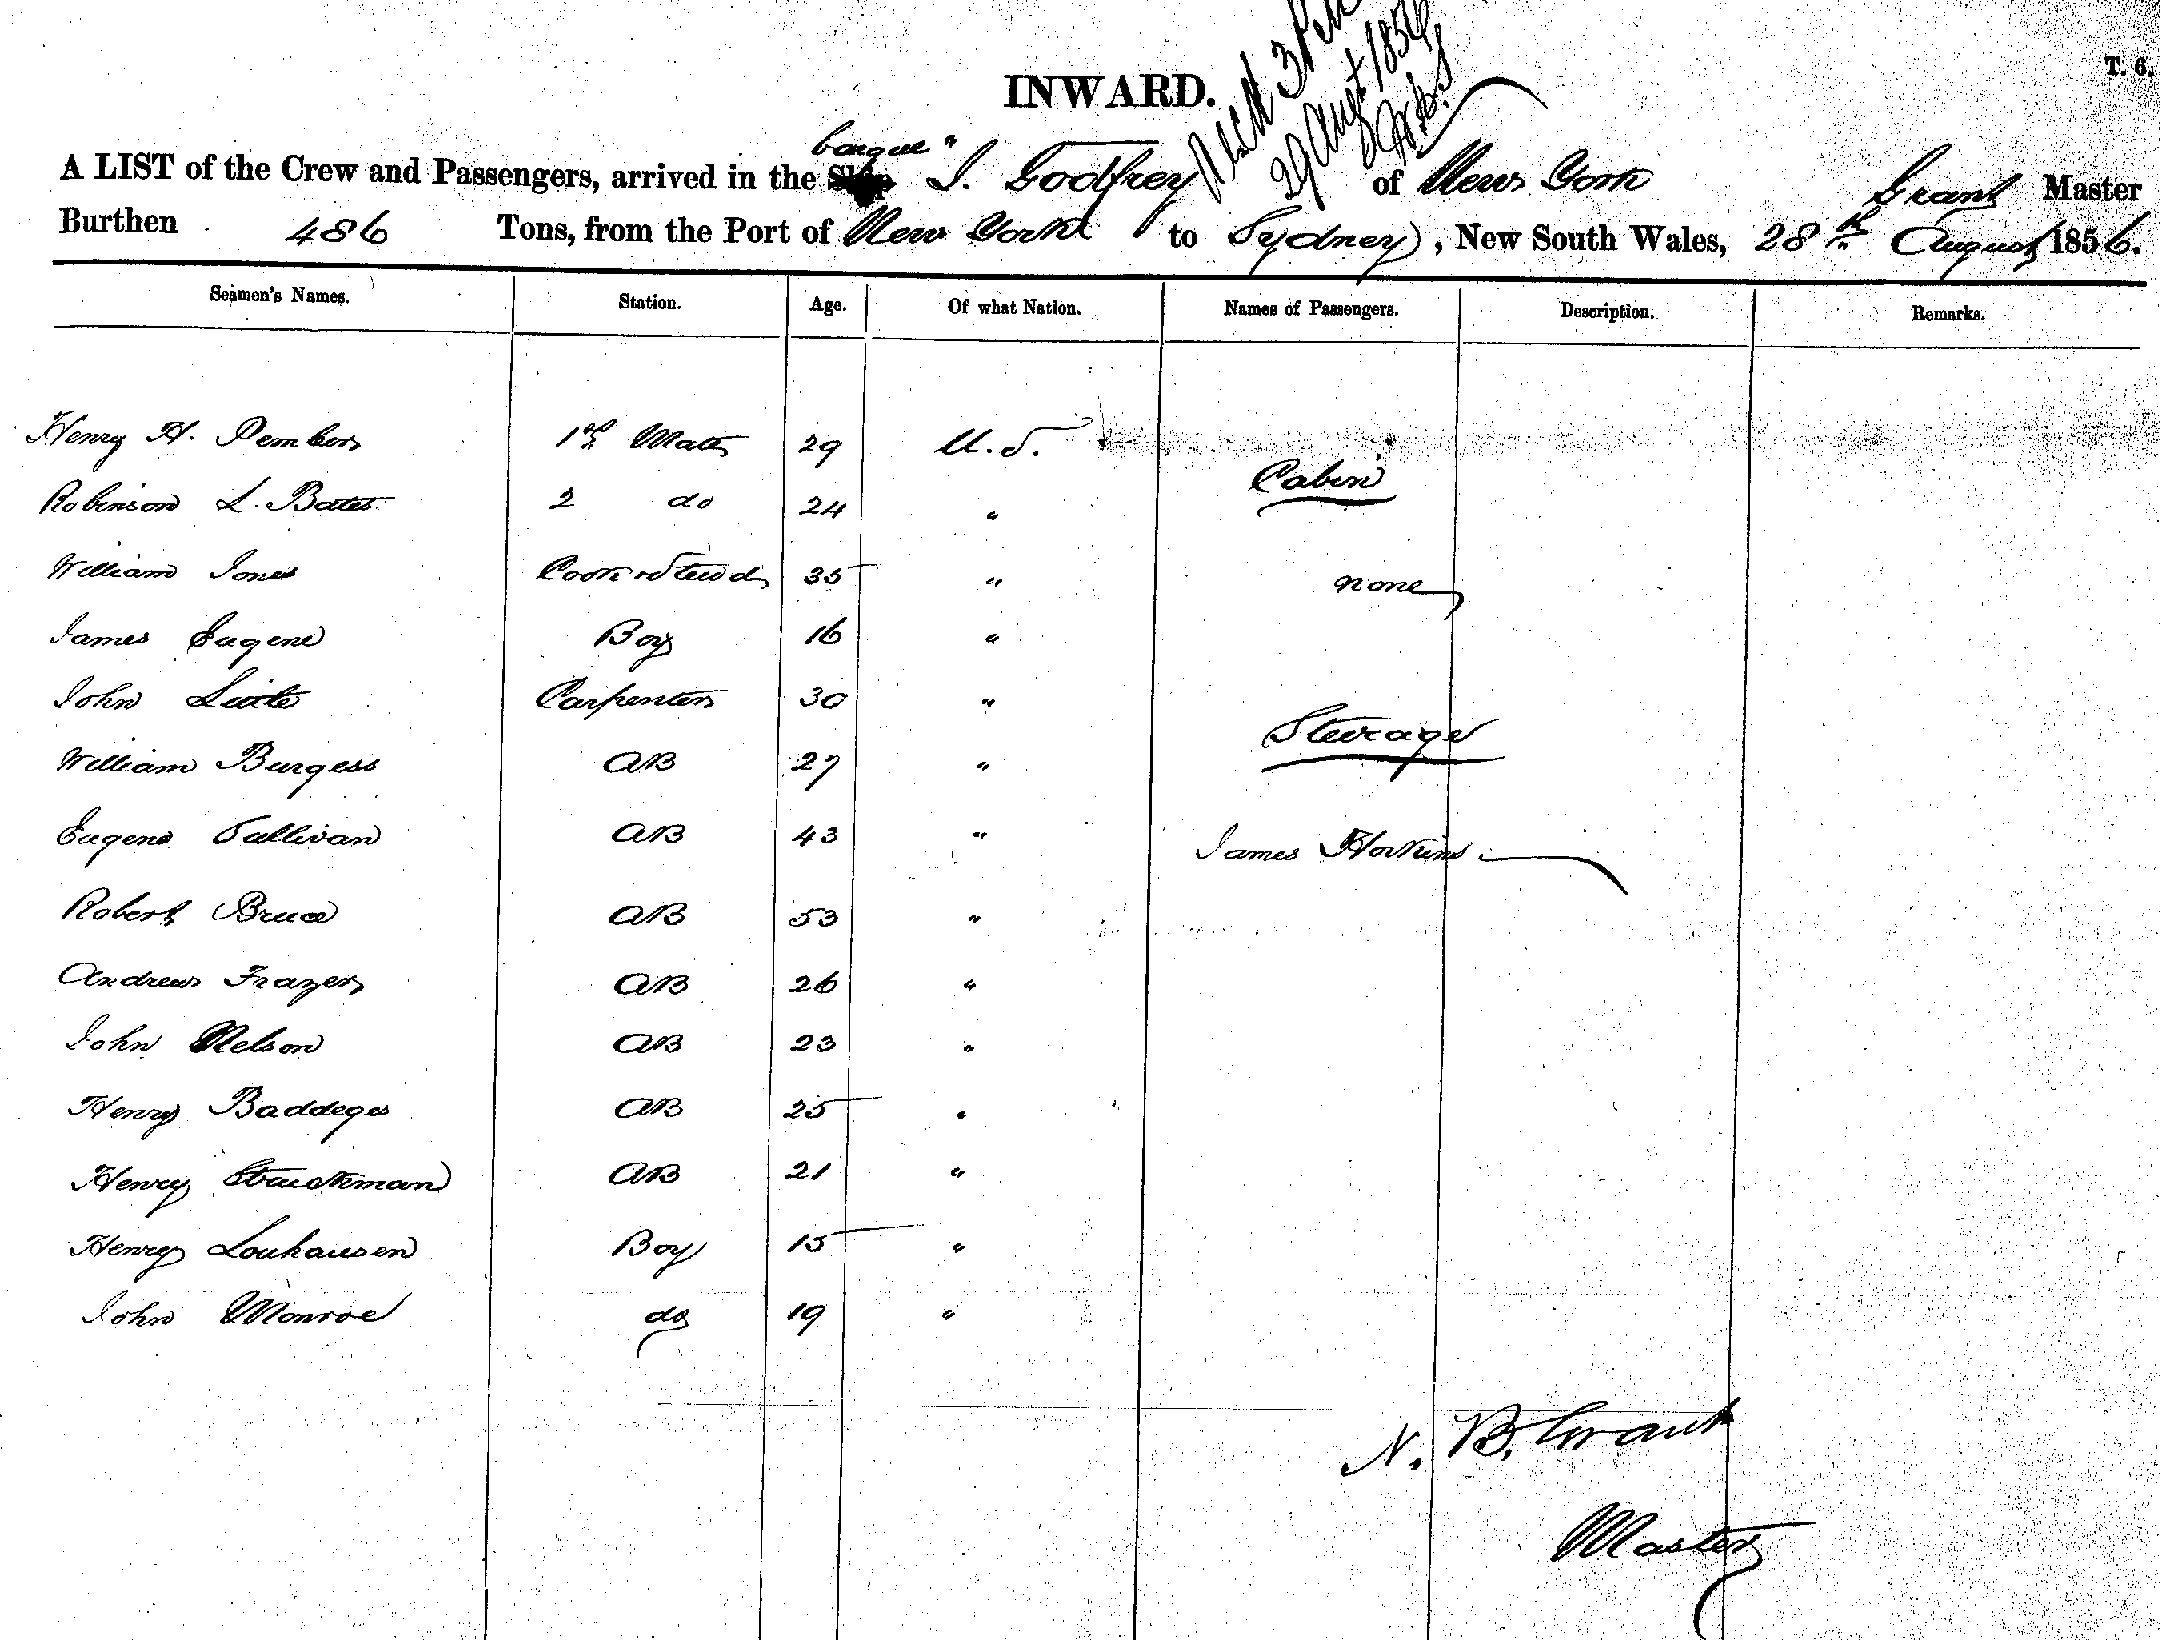 T. 6.
INWARD.
29 Augt 1856
barque "
A LIST of the Crew and Passengers, arrived in the Ship J. Godfrey of New York Grant Master
Burthen 486 Tons, from the Port of New York to Sydney, New South Wales, 28th August 1856.
Seamen's Names. Station. Age. Of what Nation. Names of Passengers. Description. Remarks.
Henry H. Pember 1st Mate 29 U.S.
Cabin
Robinson L. Bates 2 do 24 "
William Jones Cook & Stewd 35 " none
James Eugene Boy 16 "
John Carpenter 30 "
Steerage
William Burgess AB 27 "
Eugene Sullivan AB 43 " James Horkins
Robert Bruce AB 53 "
Andrew Frazer AB 26 "
John Nelson AB 23 "
Henry Baddeges AB 25 "
Henry AB 21 "
Henry Louhausen Boy 15 "
John Monroe do 19 "
N. B. Grant
Master